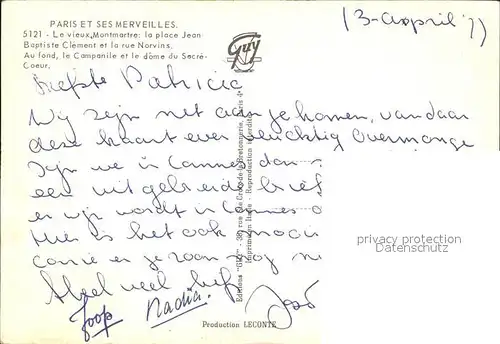 PARIS ET SES MERVEILLES.
5121 - Le vieux Montmartre: la place Jean
Baptiste Clément et la rue Norvins.
Au fond, le Campanile et le dôme du Sacré-
Coeur.
Guy
13-april
Liefste Patricia
Wij zijn net aangekomen, vandaar
deze kaart even vluchtig overmorgen
zijn we in Cannes dan
een uitgebreide brief
er in Cannes
Hier is het ook mooi
en je
Heel veel liefs
Joop Nadia. José
Editions "GUY" - 38, rue Ste Croix-de-la-Bretonnerie, Paris 4e
Imprimé en Italie - Reproduction interdite
privacy protection
Datenschutz
Production LECONTE